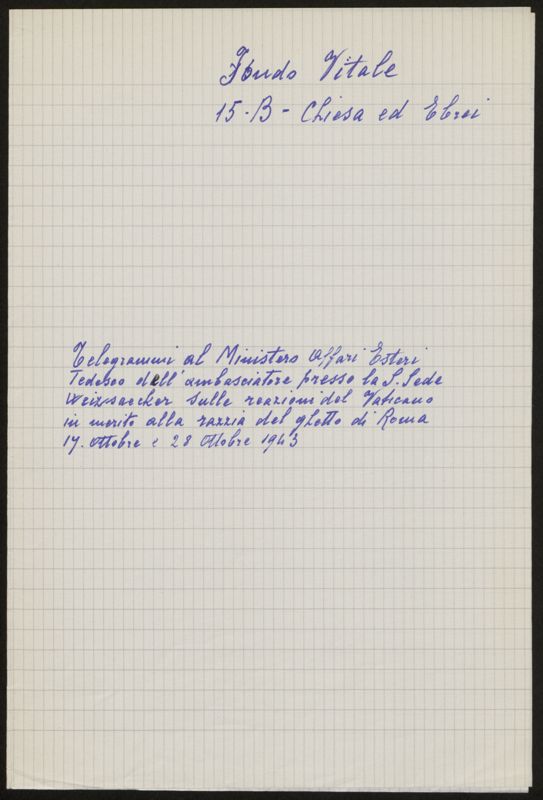 Fondo Vitale
15-B - Chiesa ed Ebrei
Telegrammi al Ministero Affari Esteri
Tedesco dell'ambasciatore presso la S. Sede
Weizsaecker sulle reazioni del Vaticano
in merito alla razzia del ghetto di Roma
17. ottobre e 28 ottobre 1943